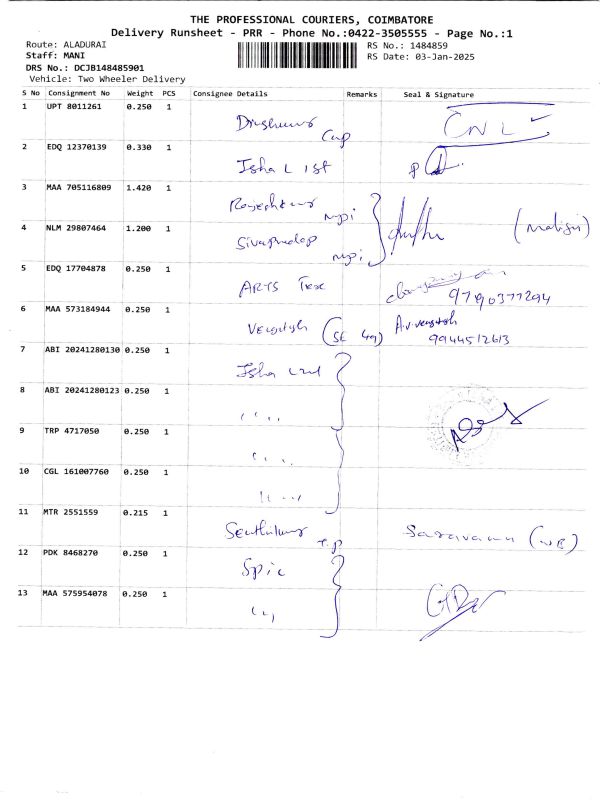 THE PROFESSIONAL COURIERS, COIMBATORE
Delivery Runsheet - PRR - Phone No.:0422-3505555 - Page No.:1
Route: ALADURAI RS No.: 1484859
Staff: MANI RS Date: 03-Jan-2025
DRS No.: DCJB148485901
Vehicle: Two Wheeler Delivery
S No Consignment No Weight PCS Consignee Details Remarks Seal & Signature
1 UPT 8011261 0.250 1
CNL
2 EDQ 12370139 0.330 1
Isha
3 MAA 705116809 1.420 1
4 NLM 29807464 1.200 1
5 EDQ 17704878 0.250 1
ARTS Tex 9790377294
6 MAA 573184944 0.250 1
9944512613
7 ABI 20241280130 0.250 1
Isha
8 ABI 20241280123 0.250 1
9 TRP 4717050 0.250 1
10 CGL 161007760 0.250 1
11 MTR 2551559 0.215 1
12 PDK 8468270 0.250 1
Spic
13 MAA 575954078 0.250 1